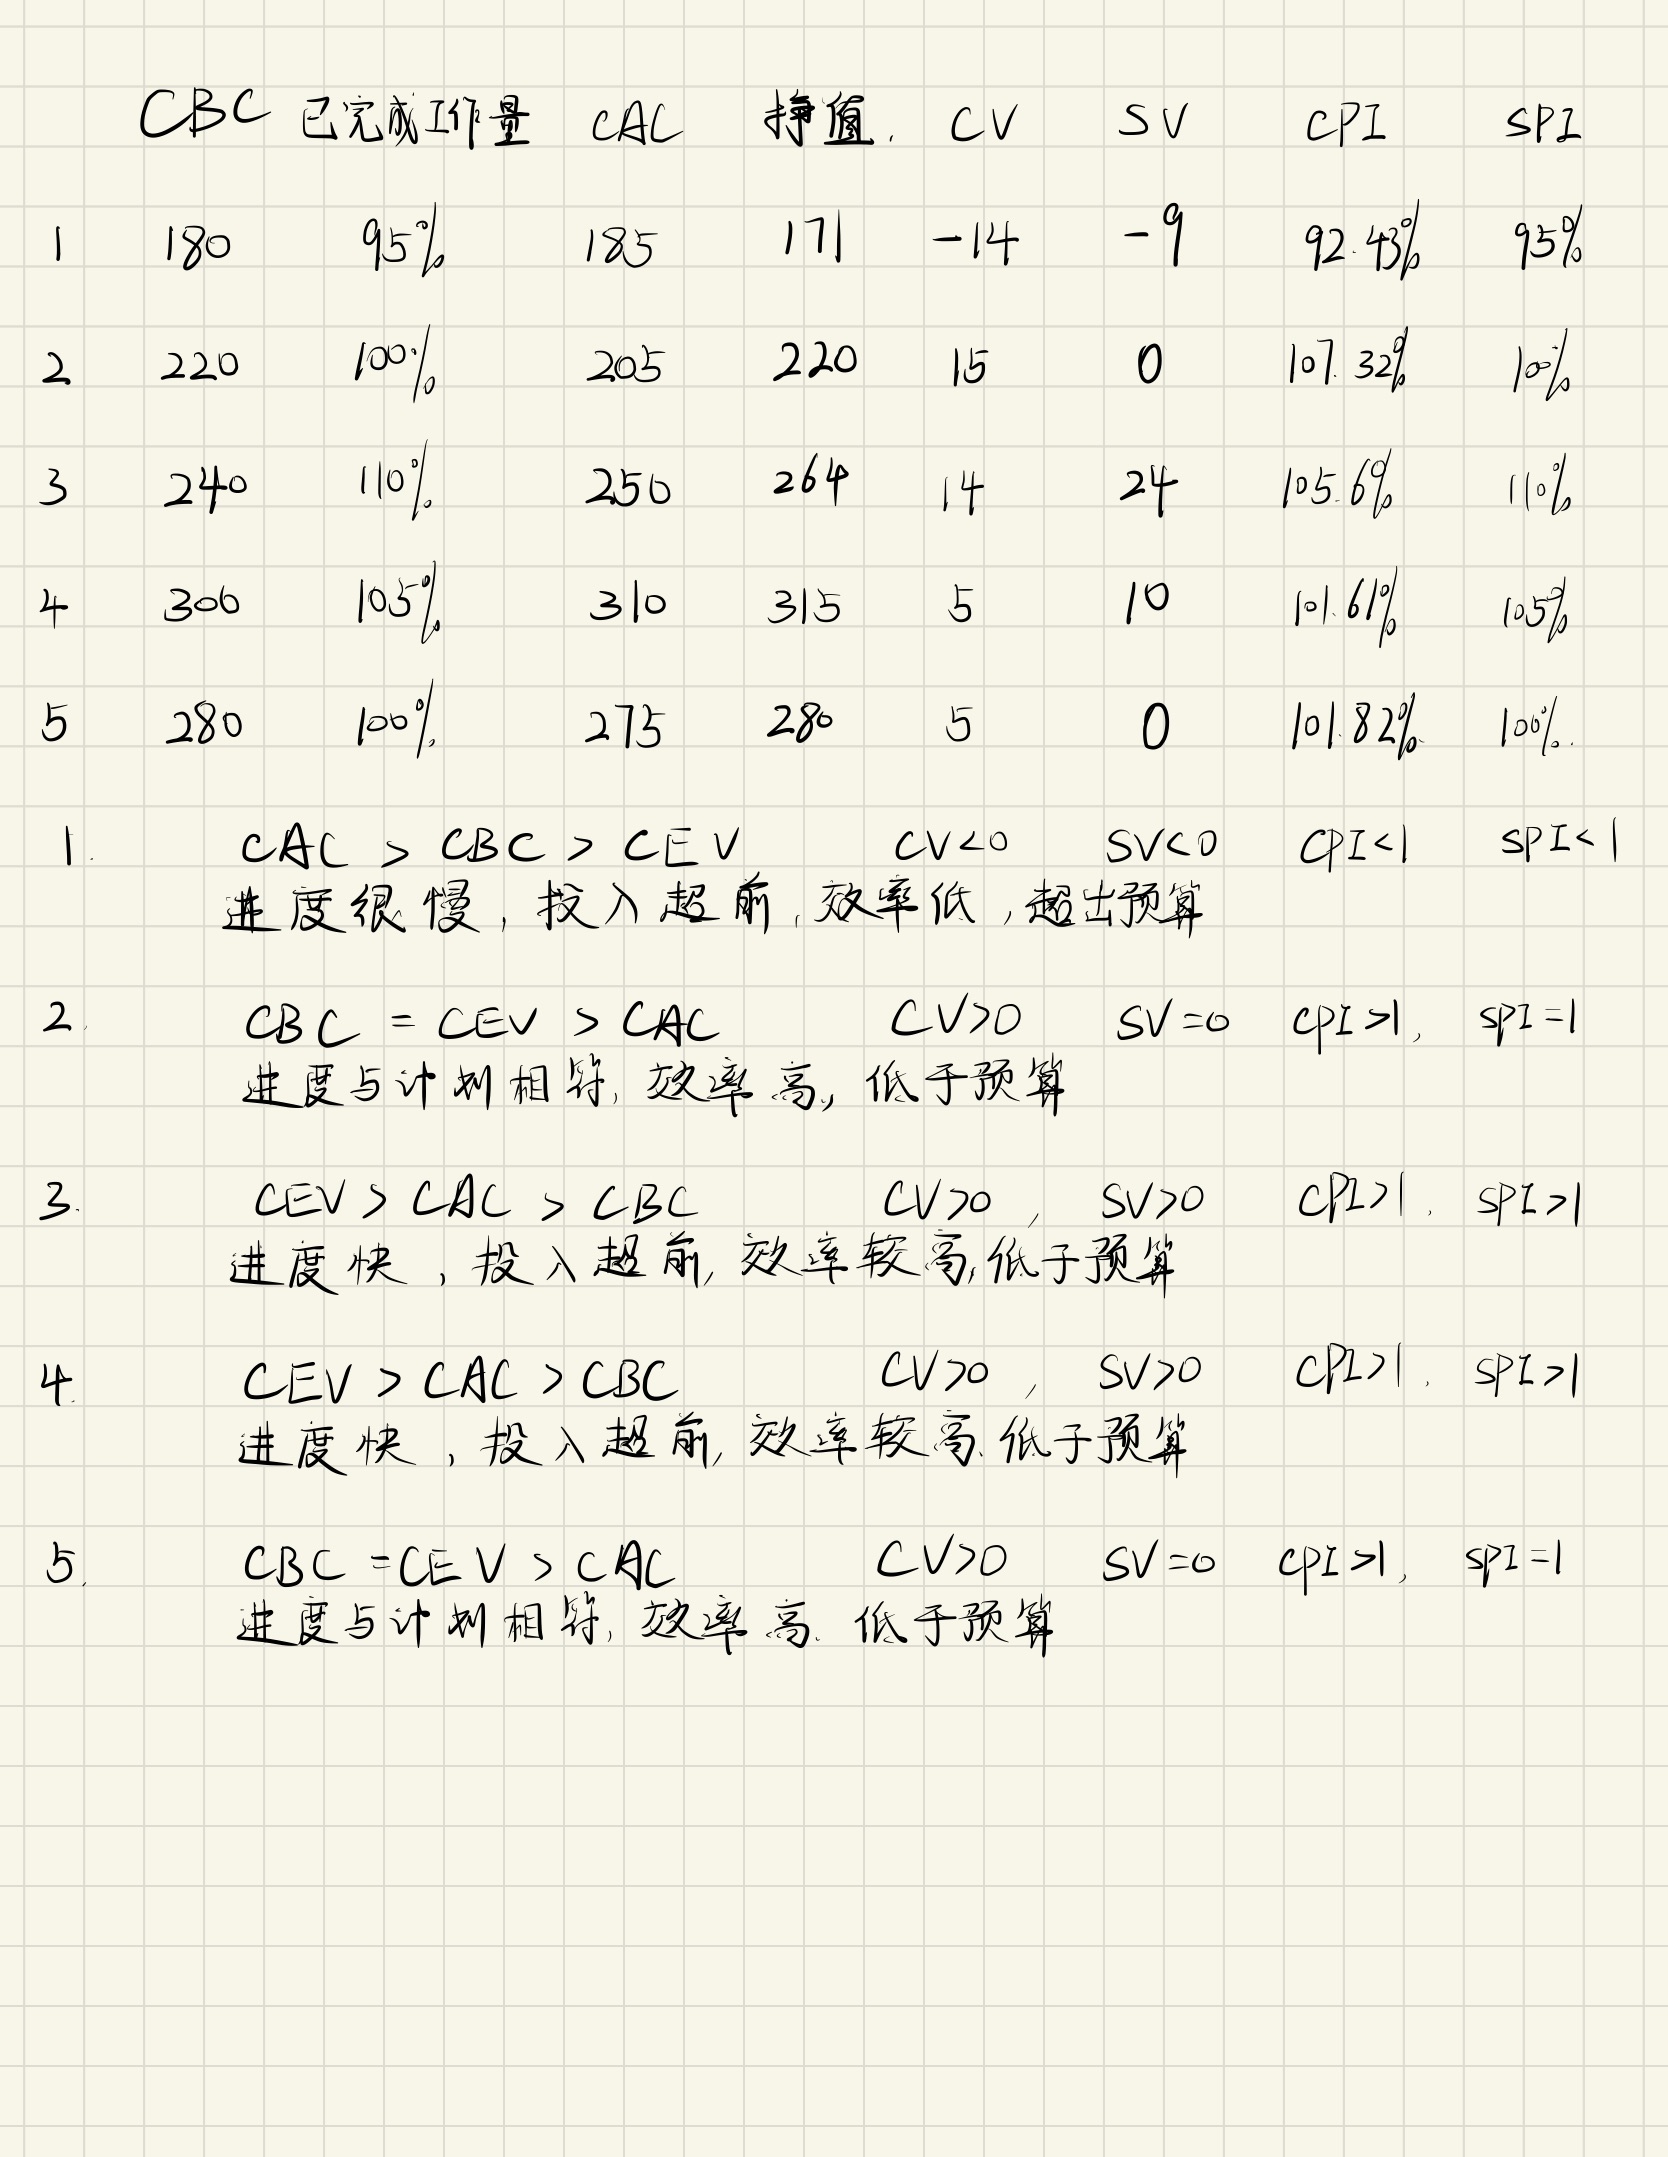 CBC 已完成工作量 CAC 挣值. CV SV CPI SPI
1 180 95% 185 171 -14 -9 92.43% 95%
2 220 100% 205 220 15 0 107.32% 100%
3 240 110% 250 264 14 24 105.6% 110%
4 300 105% 310 315 5 10 101.61% 105%
5 280 100% 275 280 5 0 101.82% 100%.
1. CAC > CBC > CEV CV<0 SV<0 CPI<1 SPI<1
进度很慢,投入超前,效率低,超出预算
2. CBC = CEV > CAC CV>0 SV=0 CPI>1, SPI=1
进度与计划相符,效率高,低于预算
3. CEV > CAC > CBC CV>0, SV>0 CPI>1, SPI>1
进度快,投入超前,效率较高,低于预算
4. CEV > CAC > CBC CV>0, SV>0 CPI>1, SPI>1
进度快,投入超前,效率较高.低于预算
5. CBC = CEV > CAC CV>0 SV=0 CPI>1, SPI=1
进度与计划相符,效率高.低于预算